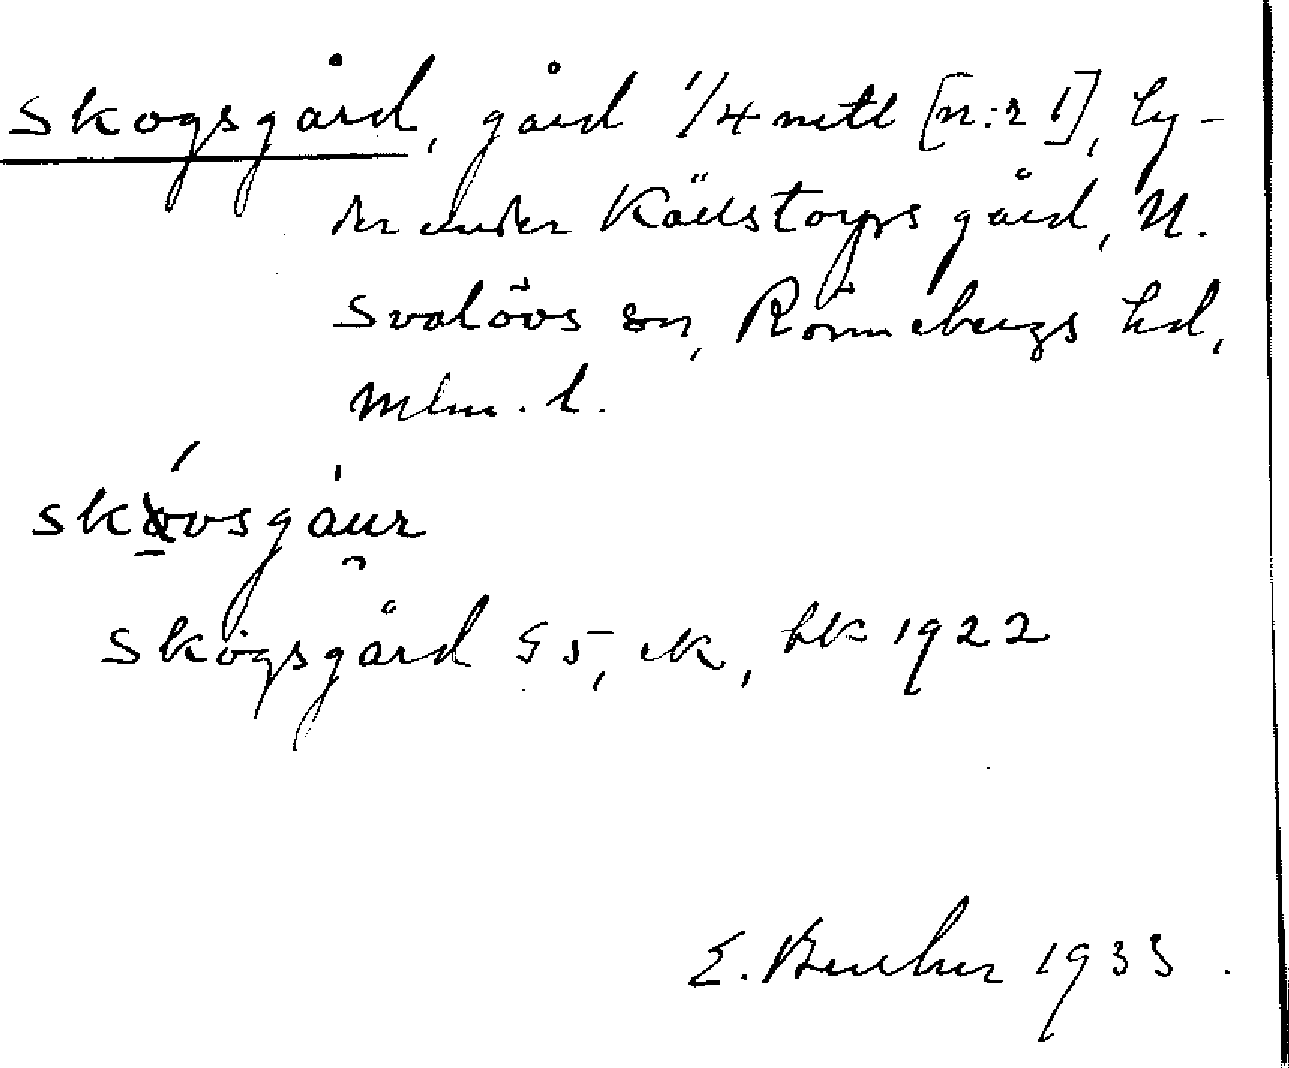 Skogsgård, gård 1/4 mtl [n:r 1], ly-
der under Källstorps gård, N.
Svalövs sn, Rönnebergs hd,
Mlm. l.
skovsgáur
Skogsgård G5, ek, hk 1922
E. 1933.